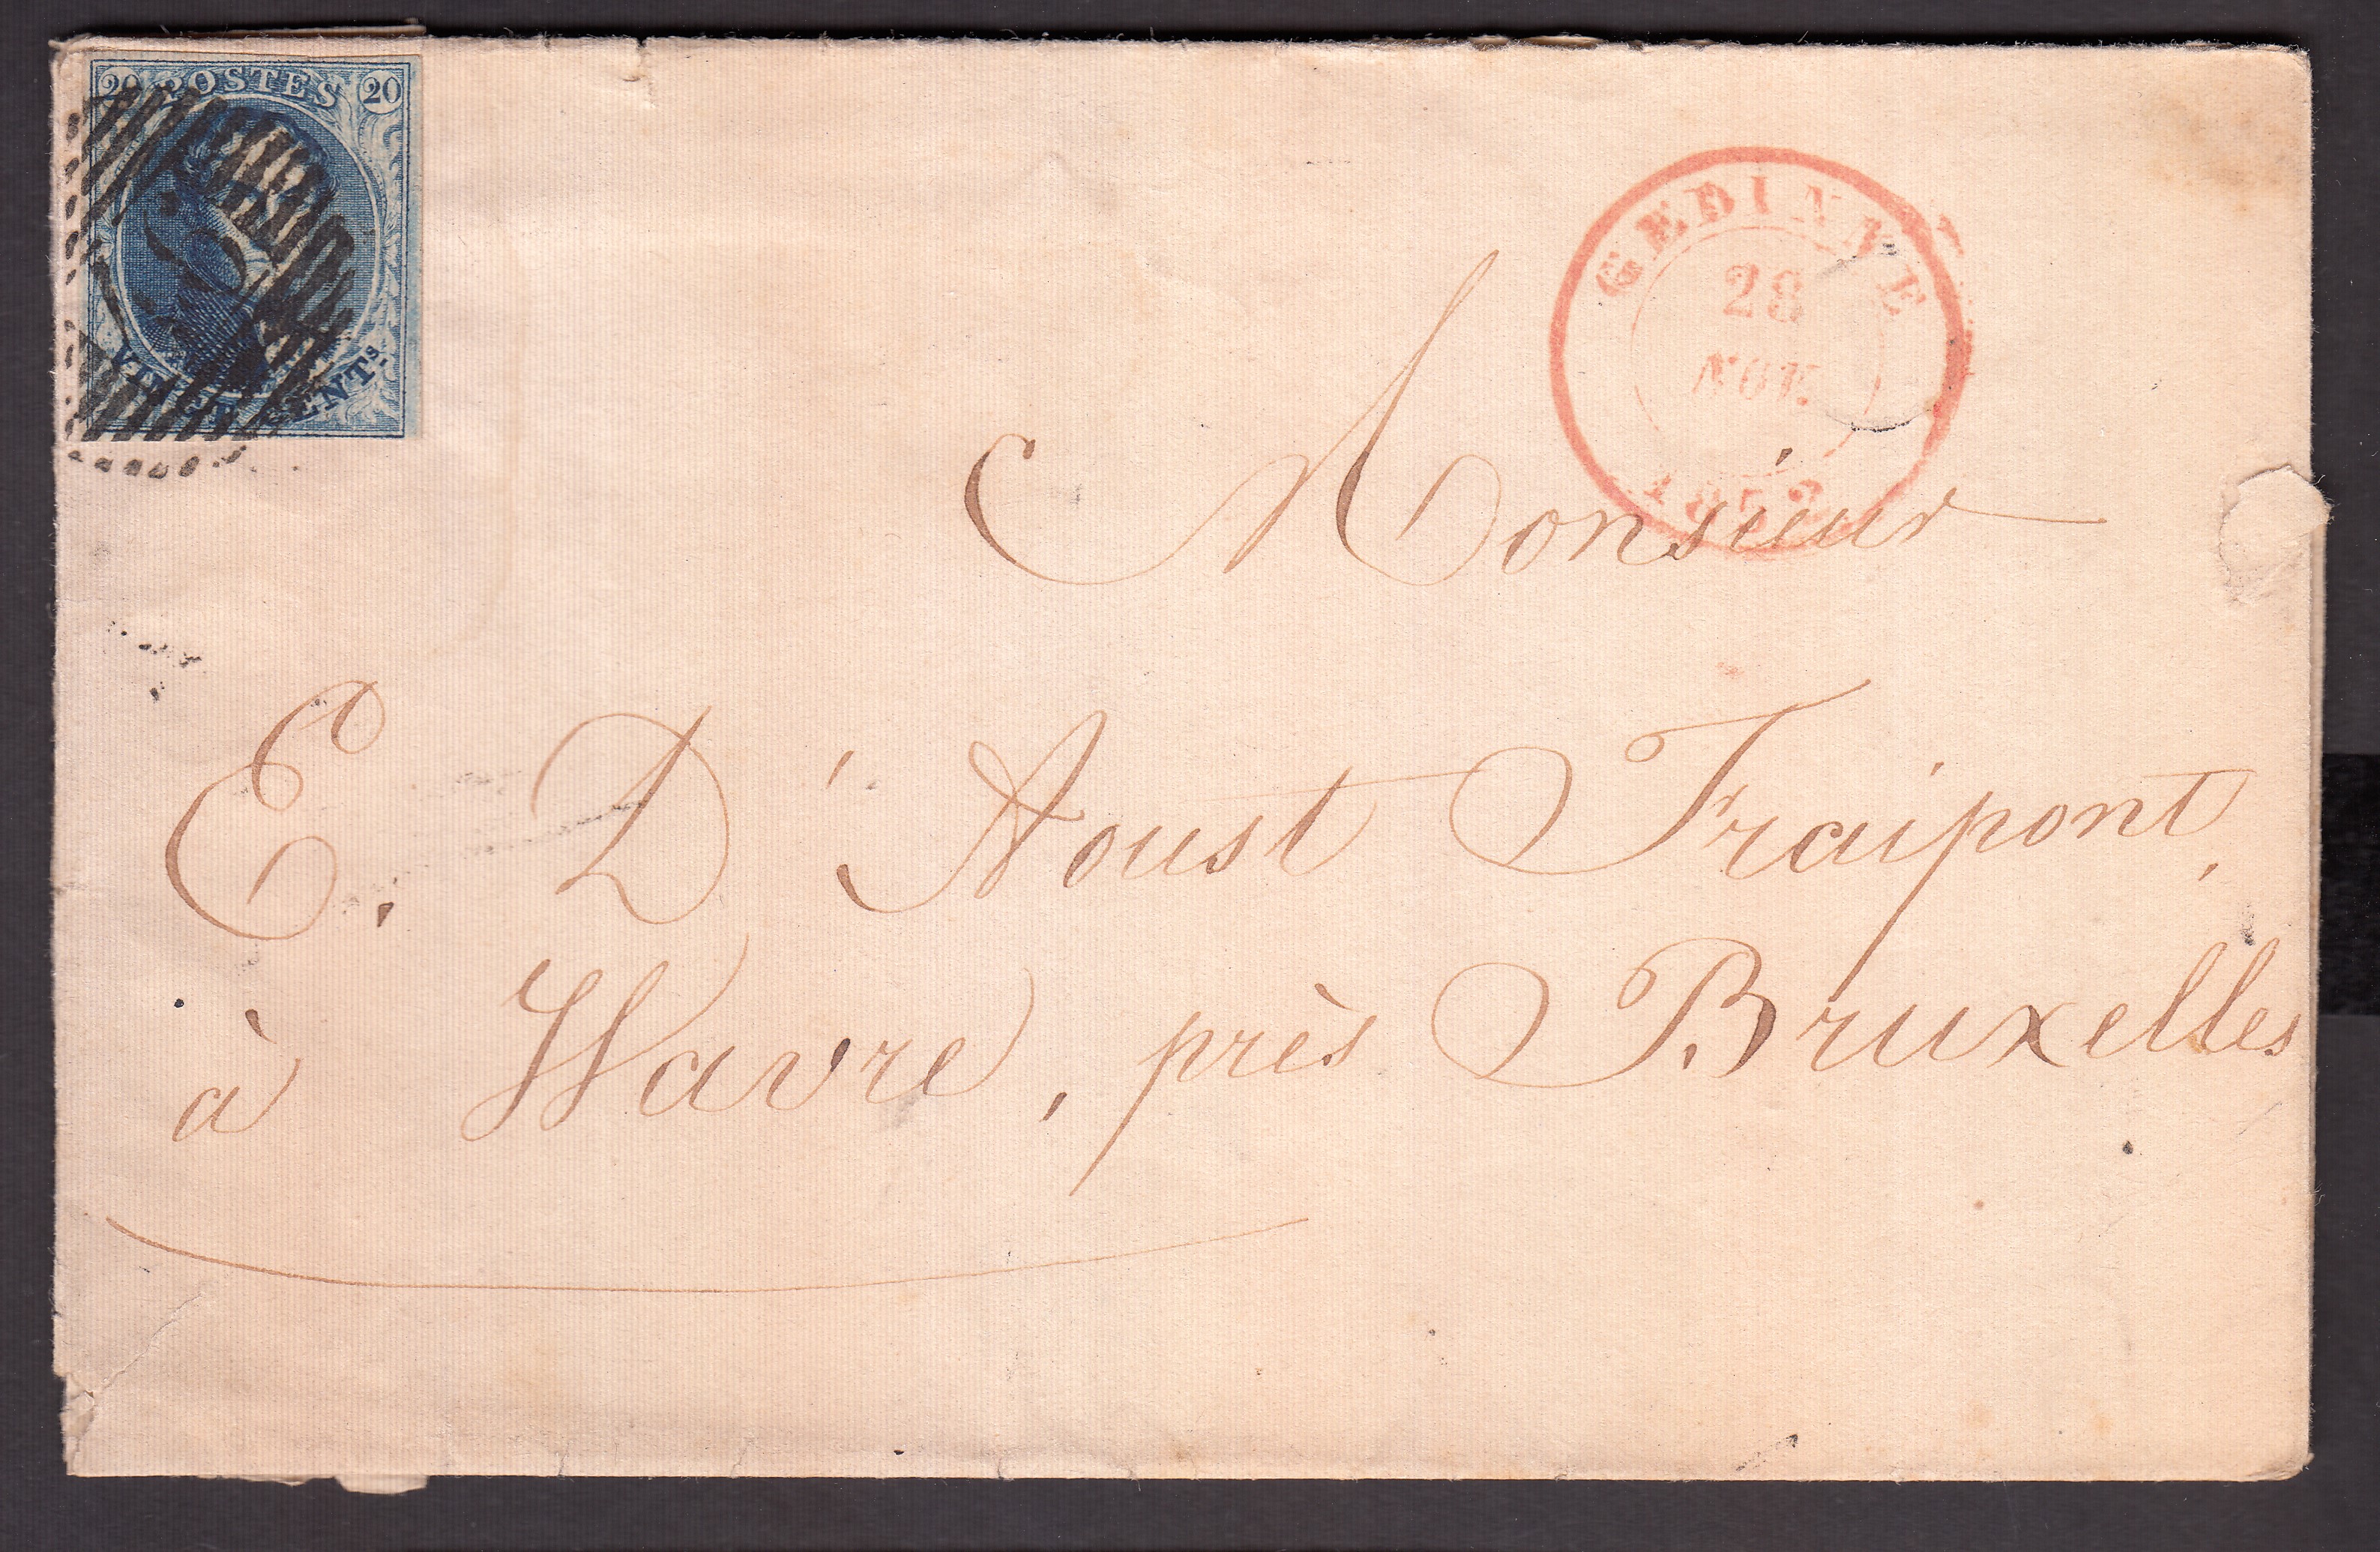 20 POSTES 20
VINGT CENTS.
GEDINNE
28
NOV.
185
Monsieur
E. D'Aoust Fraipont,
à Wavre, près Bruxelles